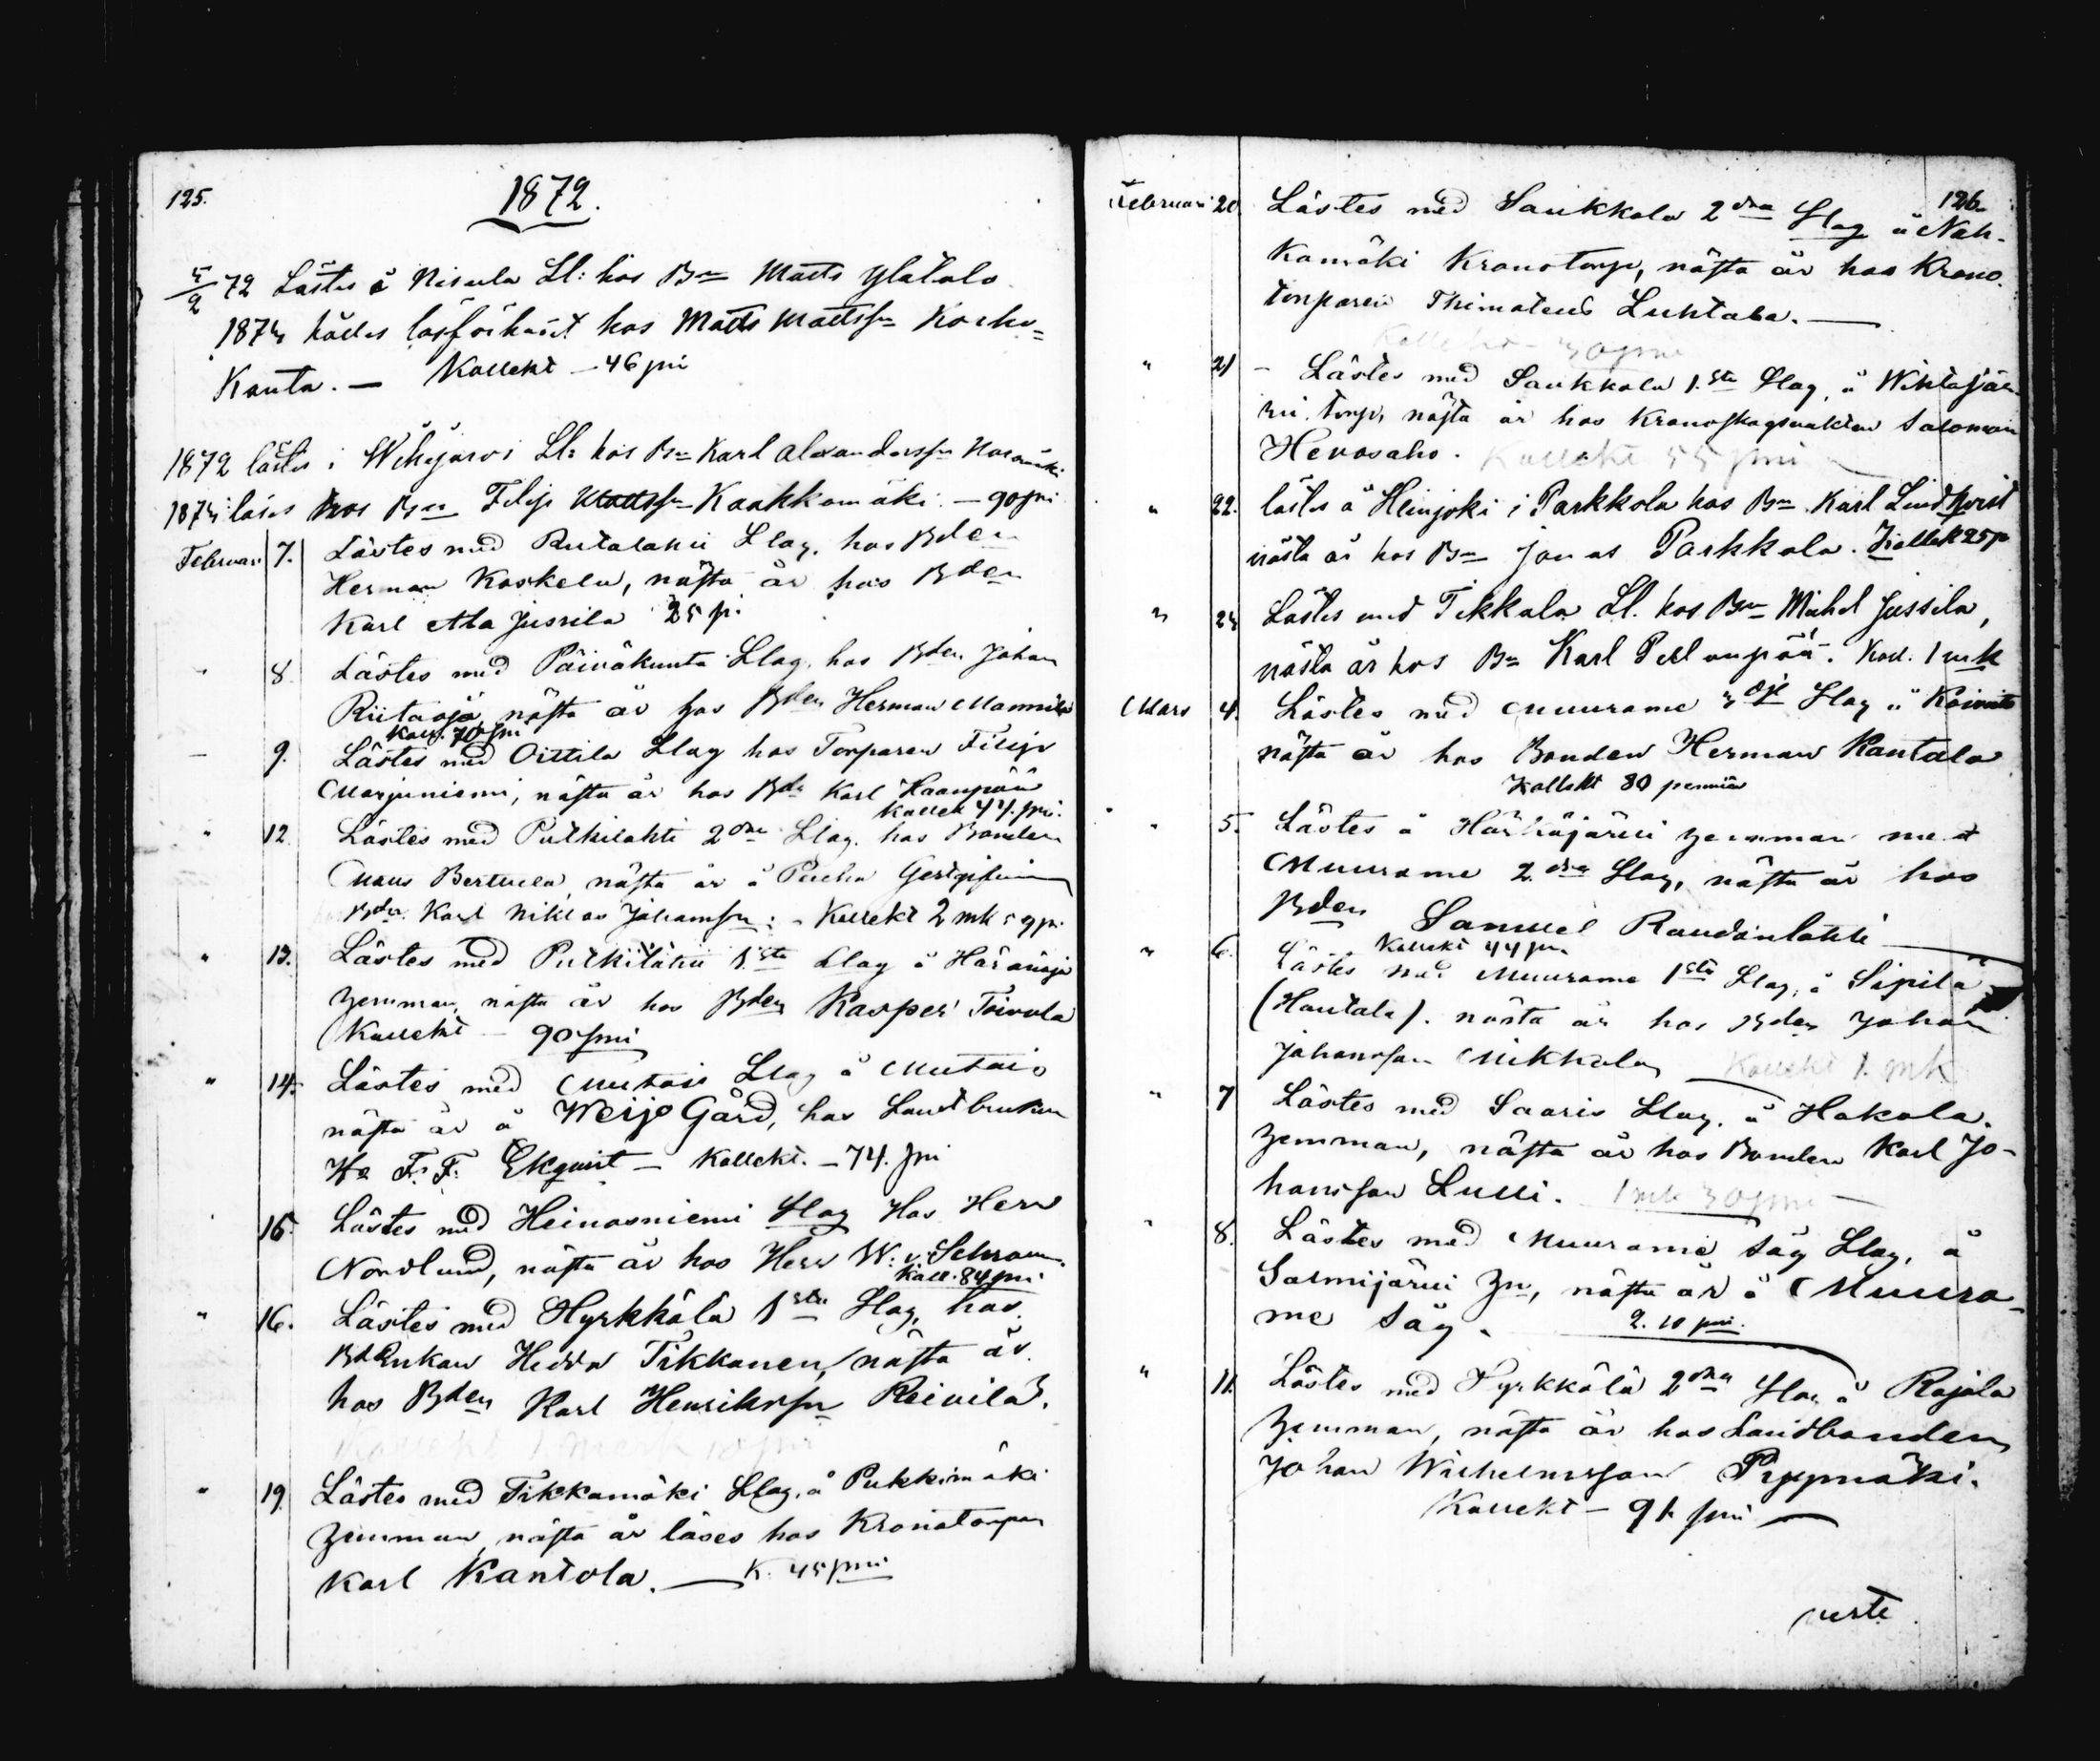 125.
1872.
5/2 72 Lästes å Nisula Ll: hos Bn Matts Ylätalo
1873 hålles läsförhöret hos Matts Mattsson Korho=
Kanta. — Kollekt — 46 pni
1872 lästes i Wihijärvi Ll: hos Bn Karl Alexandersson
1873 läses hos Bn Filip Kaakkomäki — 90 pni
Februari 7. Lästes med Rutalahti Llag, hos Bden
Herman Koskela, nästa år hos Bden
Karl Ala Jussila 25 p.
8 Lästes med Päiväkunta Llag, hos Bden Johan
Riitaoja nästa år hos Bden Herman Mannila
Koll. 70 pni
9. Lästes med Oittila Llag hos Torparen Filip
Marjuniemi, nästa år hos Bdn Karl Haanpää
Kollek 44. pni.
" 12. Lästes med Putkilahti 2dra Llag. hos Bonden
Maus Bertula nästa år å
Bdn. Karl Niklas Johansson: - Kollekt 2 mk 59 p.
" 13. Lästes med Putkilahti 1sta Llag å
hemman, nästa år hos Bden Kasper Toivola
Kollekt — 90 pni
" 14. Lästes med Mutais Llag å Mutais
nästa år å Weijo Gård, hos Landbrukan
Hr F. F. Ekqvist — Kollekt. — 74. pni
15. Lästes med Heinosniemi Llag Hos Herr
Nordlund, nästa år hos Herr W: v: Schram
Koll. 84 pni
" 16. Lästes med Hyrkkälä 1sta Llag, hos
Bdenkan Hedda Tikkanen, nästa år
hos Bden Karl Henriksson Reivilä.
Kollekt 1 mark
" 19. Lästes med Tikkamäki Llag, å Pukkimäki
hemman, nästa år läses hos Kronotorpar
Karl Kantola. — K. 45 pni
126.
Februari 20 Lästes med Saukkola 2dra Llag å Nah-
kamäki Kronotorp, nästa år hos Krono
torparen Thimoteus Luhtala. —
Kollekt - 30 pni
" 21 - Lästes med Saukkola 1sta Llag, å Wihtajär
vi torp, nästa år hos Kronoskogsvaktar Salomon
Hevosaho. Kollekt 55 pni
" 22. lästes å Heinjoki i Parkkola hos Bn Karl Lindkvist
nästa år hos Bn Jonas Parkkola. Kollek 25 p
" 23 Lästes med Tikkala Ll. hos Bn Mickel Jussila,
nästa år hos Bn Karl Perlanpää. Koll. 1 mk
Mars 4. Lästes med Muurame 3dje Llag å Koivisto
nästa år hos Bonden Herman Rantala
Kollekt 80 penniä
" 5. Lästes å hemman med
Muurame 2dra Llag, nästa år hos
Bden Samuel Raudanlahti
Kollekt 44 pni
" 6. Lästes med Muurame 1sta Llag, å Sipilä
(Hautala). nästa år hos Bden Johan
Johansson Mikkola Kollekt 1. mk
" 7 Lästes med Saaris Llag, å Hakola
hemman, nästa år hos Bonden Karl Jo-
hansson Lulli. 1 mk 30 pni —
" 8. Lästes med Muurame Såg Llag, å
Salmijärvi Hn, nästa år å Muura-
me Såg. 2. 10 pni.
" 11. Lästes med Hyrkkälä 2dra Llag å Rajala
hemman, nästa år hos Landbonden
Johan Wilhelmsson Pyymäki.
Kollekt — 91 pni —